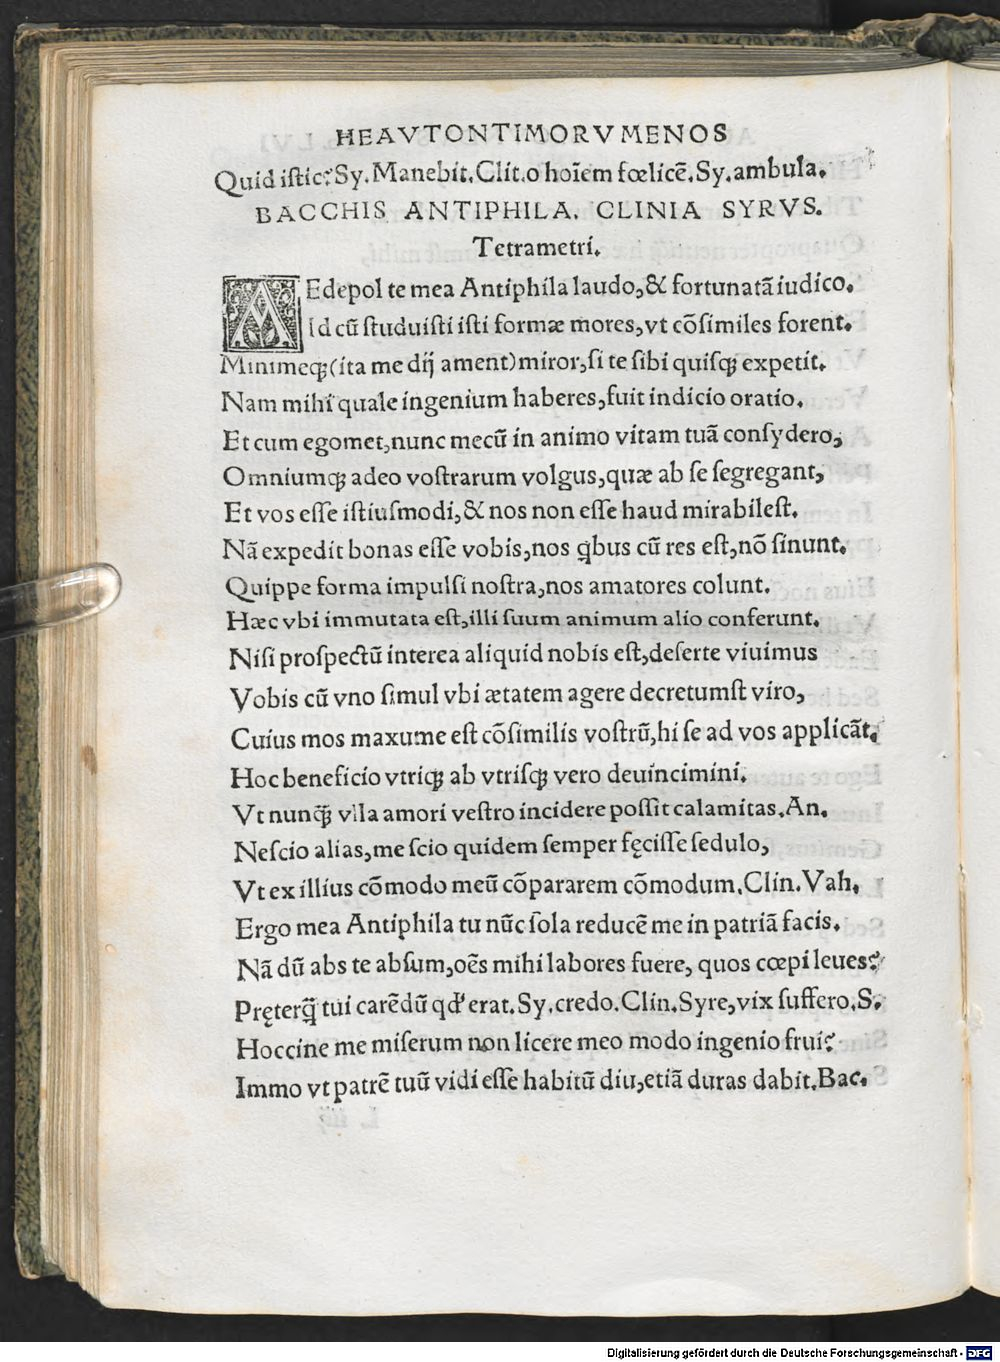 HEAVTONTIMORVMENOS
Quid iſtic? Sy. Manebit. Clit. o hoīem fœlicē. Sy. ambula.
BACCHIS ANTIPHILA. CLINIA SYRVS.
Tetrametri.
AEdepol te mea Antiphila laudo, & fortunatā iudico.
Id cū ſtuduiſti iſti formæ mores, vt cōſimiles forent.
Minimeq; (ita me dij ament) miror, ſi te ſibi quiſq; expetit.
Nam mihi quale ingenium haberes, fuit indicio oratio.
Et cum egomet, nunc mecū in animo vitam tuā conſydero,
Omniumq; adeo voſtrarum volgus, quæ ab ſe ſegregant,
Et vos eſſe iſtiuſmodi, & nos non eſſe haud mirabileſt.
Nā expedit bonas eſſe vobis, nos qbus cū res eſt, nō ſinunt.
Quippe forma impulſi noſtra, nos amatores colunt.
Hæc vbi immutata eſt, illi ſuum animum alio conferunt.
Niſi proſpectū interea aliquid nobis eſt, deſerte viuimus
Vobis cū vno ſimul vbi ætatem agere decretumſt viro,
Cuius mos maxume eſt cōſimilis voſtrū, hi ſe ad vos applicāt.
Hoc beneficio vtriq; ab vtriſq; vero deuincimini.
Vt nunq̄; vlla amori veſtro incidere poſſit calamitas. An.
Neſcio alias, me ſcio quidem ſemper fęciſſe ſedulo,
Vt ex illius cōmodo meū cōpararem cōmodum. Clin. Vah.
Ergo mea Antiphila tu nūc ſola reducē me in patriā facis.
Nā dū abs te abſum, oēs mihi labores fuere, quos cœpi leues?
Pręterq̄; tui carēdū qd' erat. Sy. credo. Clin. Syre, vix ſuffero. S.
Hoccine me miſerum non licere meo modo ingenio frui?
Immo vt patrē tuū vidi eſſe habitū diu, etiā duras dabit. Bac.
Digitalisierung gefördert durch die Deutsche Forschungsgemeinschaft - DFG